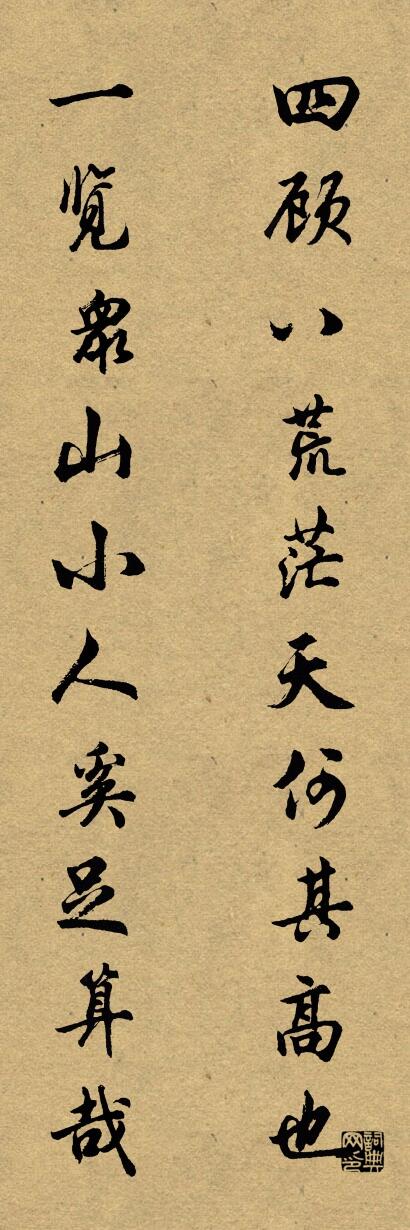 四顾八荒茫天何其高也
一览众山小人奚足算哉
詞典网印